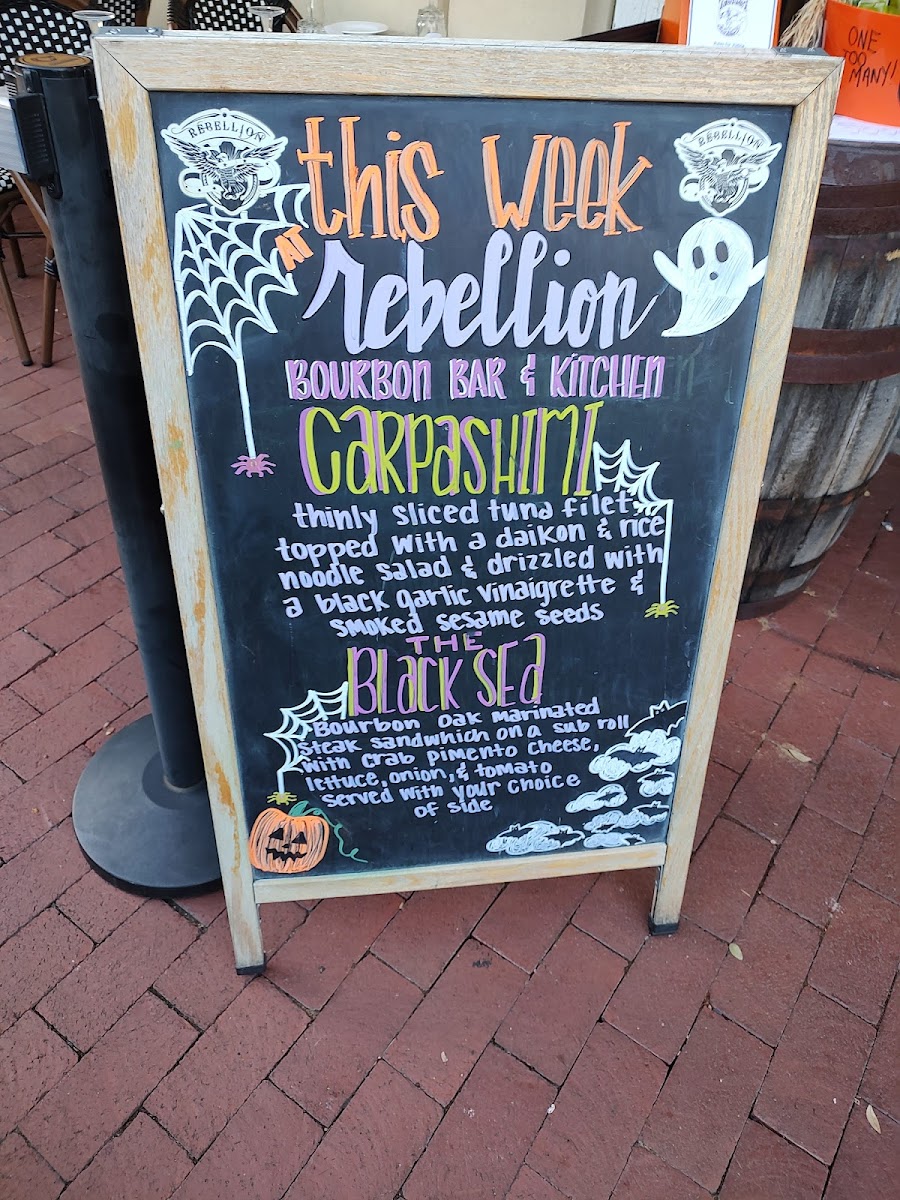 REBELLION
REBELLION
this week
AT
rebellion
BOURBON BAR & KITCHEN
CARPASHIMI
thinly sliced tuna filet,
topped with a daikon & rice
noodle salad & drizzled with
a black garlic vinaigrette &
smoked sesame seeds
THE
BLACK SEA
Bourbon oak marinated
steak sandwhich on a sub roll
with crab pimento cheese,
lettuce, onion, & tomato
served with your choice
of side
ONE
TOO
MANY!